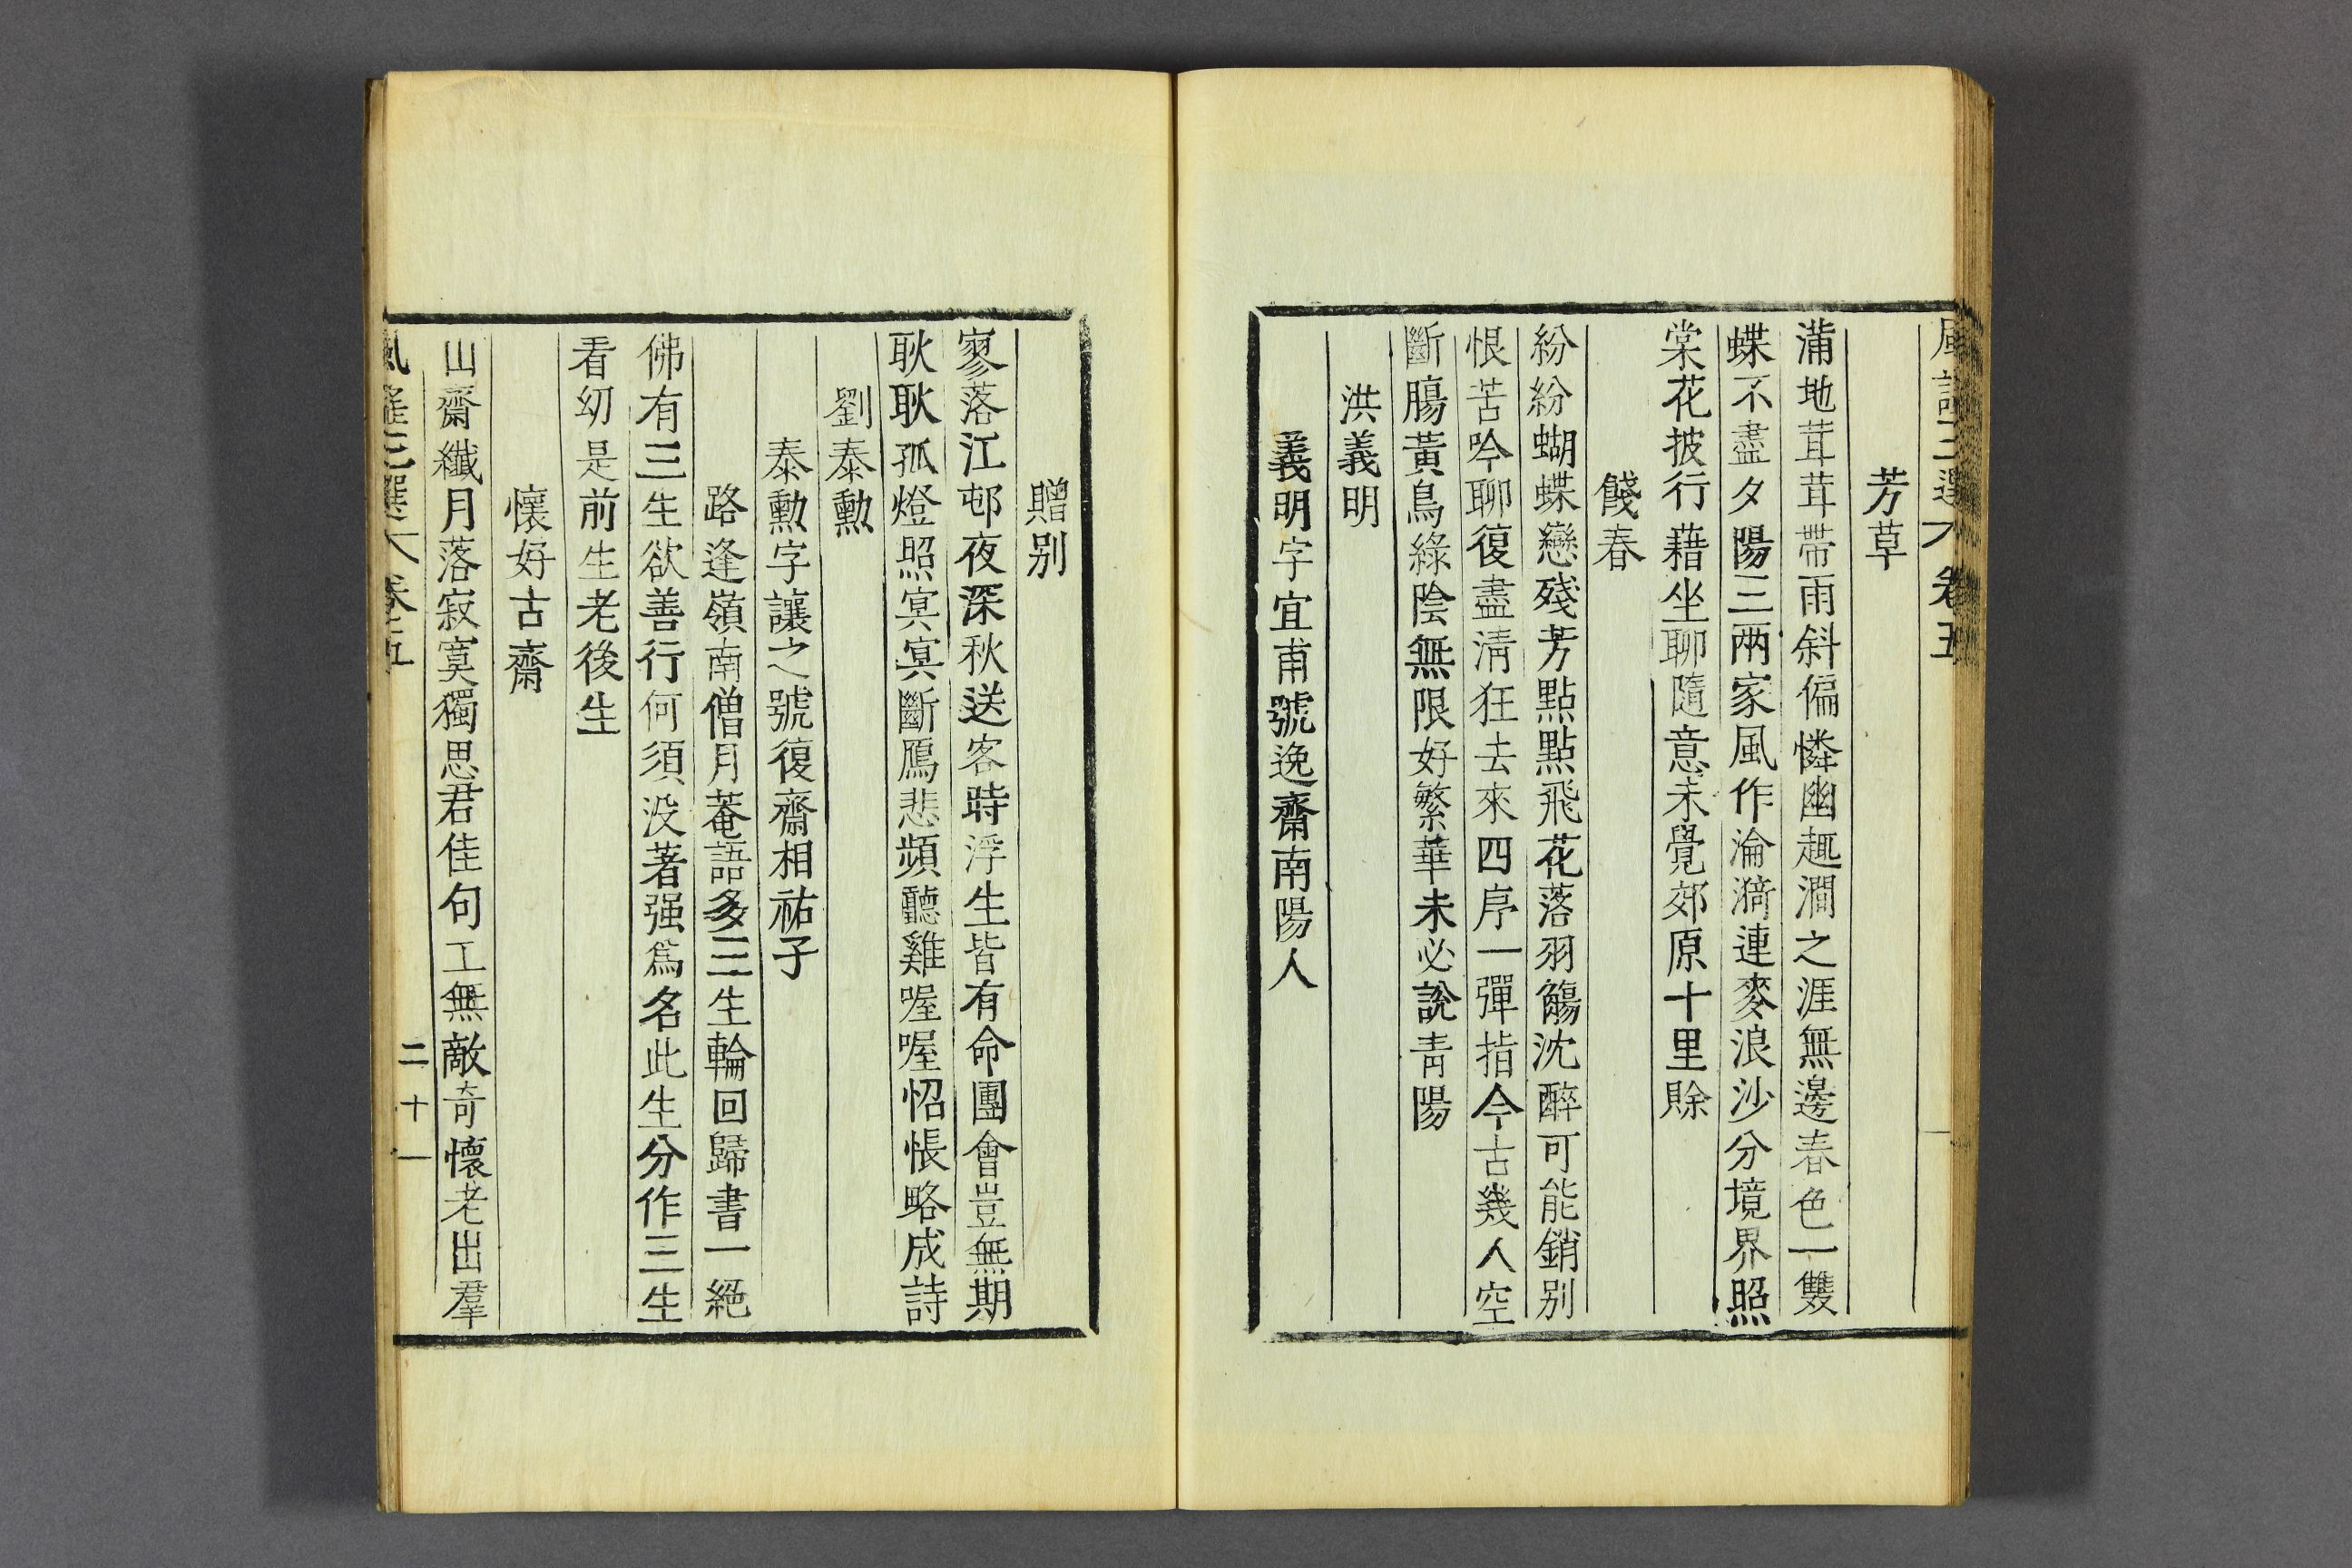 風謠三選 卷五
芳草
滿地茸茸帶雨斜偏憐幽趣澗之涯無邊春色一雙
蝶不盡夕陽三兩家風作淪漪連麥浪沙分境界照
棠花披行藉坐聊隨意未覺郊原十里賒
餞春
紛紛蝴蝶戀殘芳點點飛花落羽觴沈醉可能銷别
恨苦吟聊復盡淸狂去來四序一彈指今古幾人空
斷膓黃鳥綠陰無限好繁華未必說靑陽
洪義明
義明字宜甫號逸齋南陽人
贈别
寥落江邨夜深秋送客時浮生皆有命團會豈無期
耿耿孤燈照冥冥斷鴈悲頻聽雞喔喔怊悵略成詩
劉泰勳
泰勳字讓之號復齋相祐子
路逢嶺南僧月菴語多三生輪回歸書一絕
佛有三生欲善行何須没著强爲名此生分作三生
看幼是前生老後生
懷好古齋
山齋纖月落寂寞獨思君佳句工無敵奇懷老出羣
風謠三選 卷五 二十一